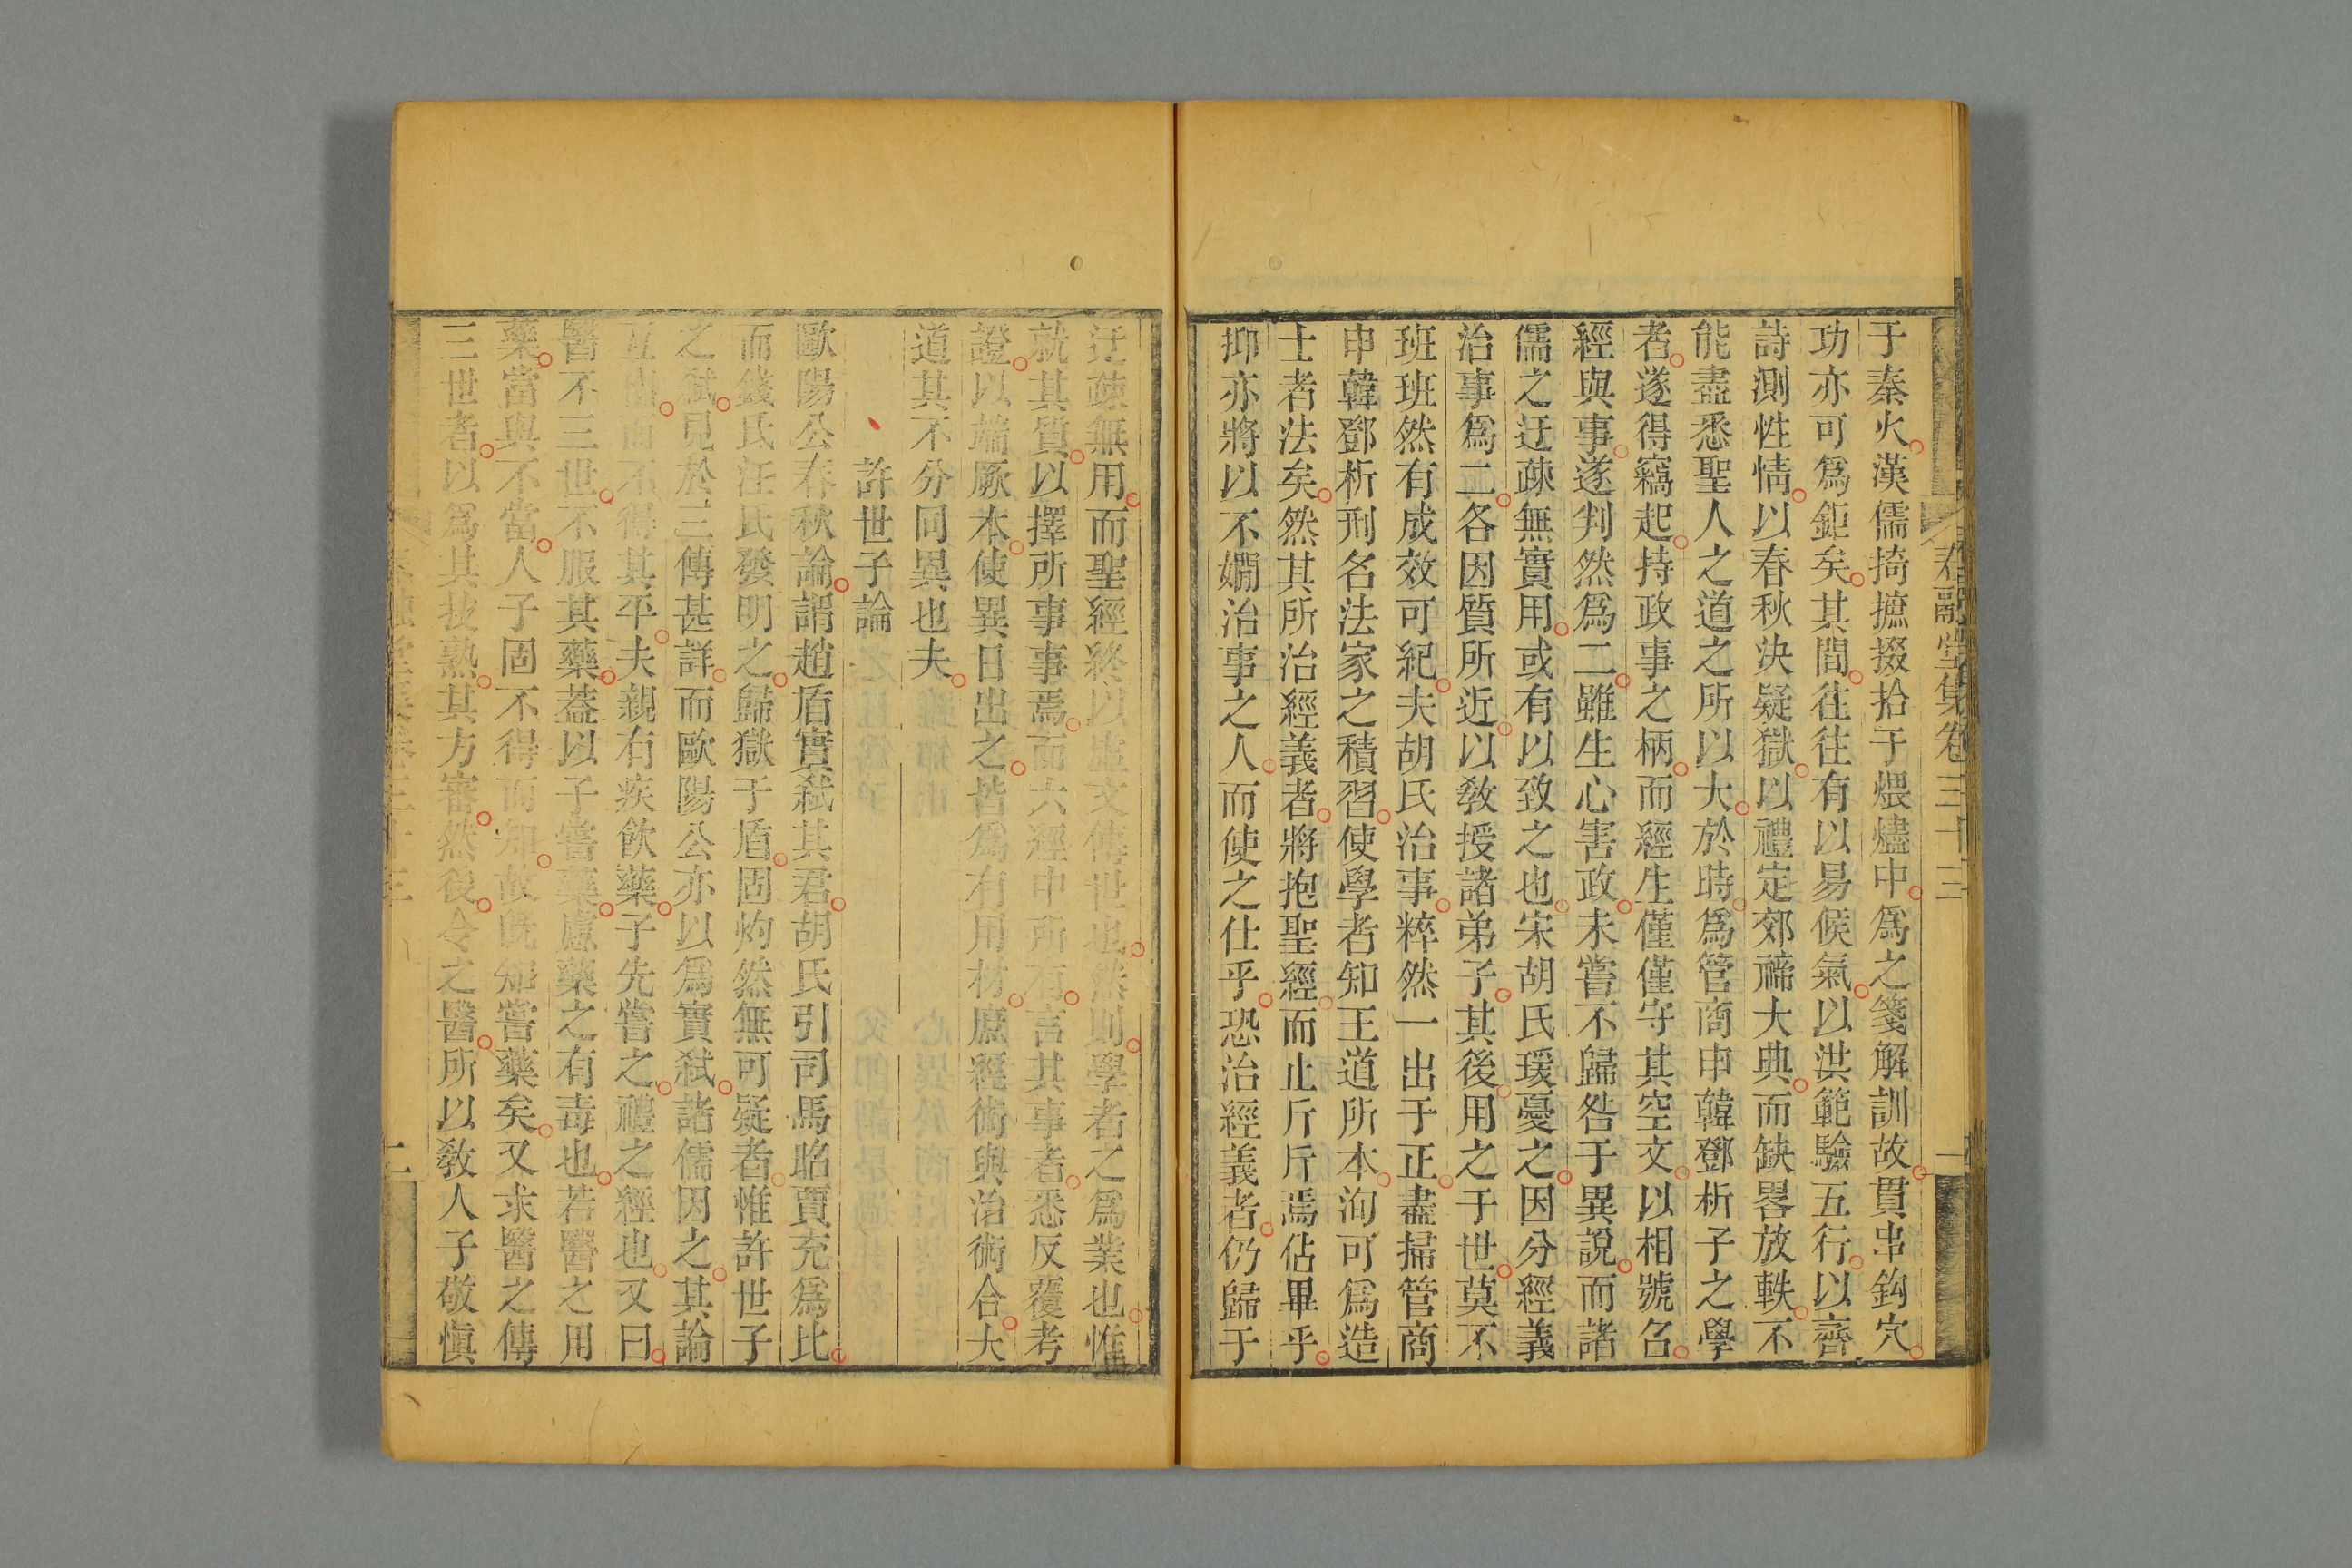 春融堂集卷三十三
一
于秦火漢儒掎摭掇拾于煨燼中爲之箋解訓故貫串鈎穴
功亦可爲鉅矣其間往往有以易候氣以洪範驗五行以齊
詩測性情以春秋決疑獄以禮定郊禘大典而缺畧放軼不
能盡悉聖人之道之所以大於時爲管商申韓鄧析子之學
者遂得竊起持政事之柄而經生僅僅守其空文以相號名
經與事遂判然爲二雖生心害政未嘗不歸咎于異說而諸
儒之迂疎無實用或有以致之也宋胡氏瑗憂之因分經義
治事爲二各因質所近以敎授諸弟子其後用之于世莫不
班班然有成效可紀夫胡氏治事粹然一出于正盡掃管商
申韓鄧析刑名法家之積習使學者知王道所本洵可爲造
士者法矣然其所治經義者將抱聖經而止斤斤焉佔畢乎
抑亦將以不嫺治事之人而使之仕乎恐治經義者仍歸于
迂疎無用而聖經終以虛文傳世也然則學者之爲業也惟
就其質以擇所事事焉而六經中所有言其事者悉反覆考
證以端厥本使異日出之皆爲有用材庶經術與治術合大
道其不分同異也夫
許世子論
歐陽公春秋論謂趙盾實弑其君胡氏引司馬昭賈充爲比
而錢氏汪氏發明之歸獄于盾固灼然無可疑者惟許世子
之弑見於三傳甚詳而歐陽公亦以爲實弑諸儒因之其論
互出而不得其平夫親有疾飲藥子先嘗之禮之經也又曰
醫不三世不服其藥葢以子嘗藥慮藥之有毒也若醫之用
藥當與不當人子固不得而知故旣知嘗藥矣又求醫之傳
三世者以爲其技熟其方審然後令之醫所以敎人子敬愼
二